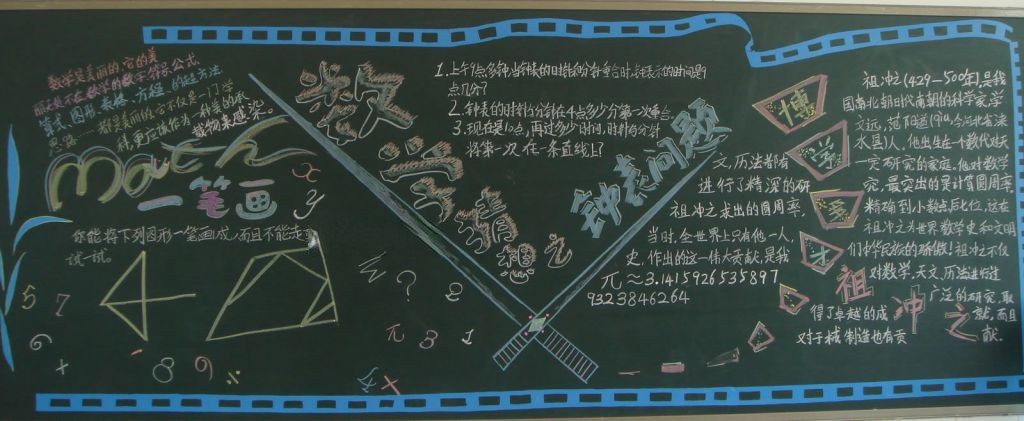 数学是美丽的,它的美
算式、图形、表格、方程
种,更应该作为一种美的承
载物来感染。
math
一笔画
你能将下列图形一笔画成,而且不能走重
试一试。
5
7
6
+
8
9
x
y
W
?
2
π
3
1
数学
激情
钟表问题
1.上午9点多钟,当钟表的时针和分针重合时,钟表表示的时间是9
点几分?
2.钟表的时针与分针在4点多少分第一次重合
3.现在是10点,再过多少时间,时针与分针
将第一次在一条直线上?
文,历法都有
进行了精深的研
祖冲之求出的圆周率,
当时,全世界上只有他一人,
史,作出的这一伟大贡献,是我
π≈3.1415926535897
9323846264
博
学
多
才
祖
冲
之
祖冲之(429-500年),是我
国南北朝时代南朝的科学家,学
水县)人,他出生在一个数代对天
文研究的家庭,他对数学
究,最突出的是计算圆周率
精确到小数点后七位,这在
祖冲之为世界数学史和文明
们中华民族的骄傲!祖冲之不仅
对数学,天文,历法进行过
广泛的研究,取
得了卓越的成
就,而且
对于机械制造也有贡
献.